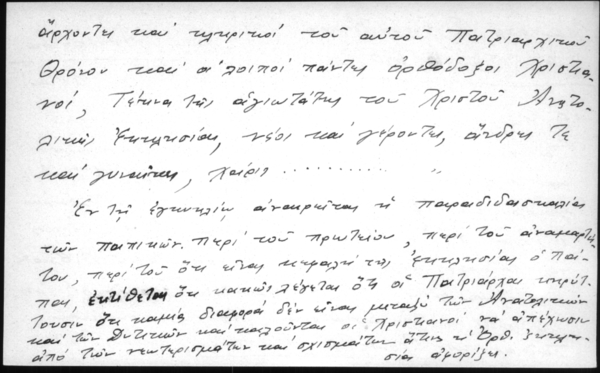 ἄρχοντες καὶ κληρικοί τοῦ αὐτοῦ Πατριαρχικοῦ
Θρόνου καὶ οἱ λοιποί πάντες ὀρθόδοξοι Χριστια-
νοί, Τέκνα τῆς ἁγιωτάτης τοῦ Χριστοῦ Ἀνατο-
λικῆς Ἐκκλησίας, νέοι καὶ γέροντες, ἄνδρες τε
καὶ γυναῖκες, χάρις .......... "
Ἐν τῇ ἐγκυκλίῳ ἀναιρεῖται ἡ παραδιδασκαλία
τῶν παπικῶν περί τοῦ πρωτείου, περί τοῦ ἀναμαρτή-
του, περί τοῦ ὅτι εἶναι κεφαλή τῆς ἐκκλησίας ὁ Πά-
πας, ἐκτίθεται ὅτι κακῶς λέγεται ὅτι οἱ Πατριάρχαι κηρύτ-
τουσιν ὅτι καμία διαφορά δέν εἶναι μεταξύ τῶν Ἀνατολικῶν
καὶ τῶν Δυτικῶν καὶ καλοῦνται οἱ Χριστιανοί νά ἀπέχωσιν
ἀπό τῶν νεωτερισμάτων καὶ σχισμάτων ἅτινα ἡ Ὀρθ. Ἐκκλη-
σία ἀφορίζει.